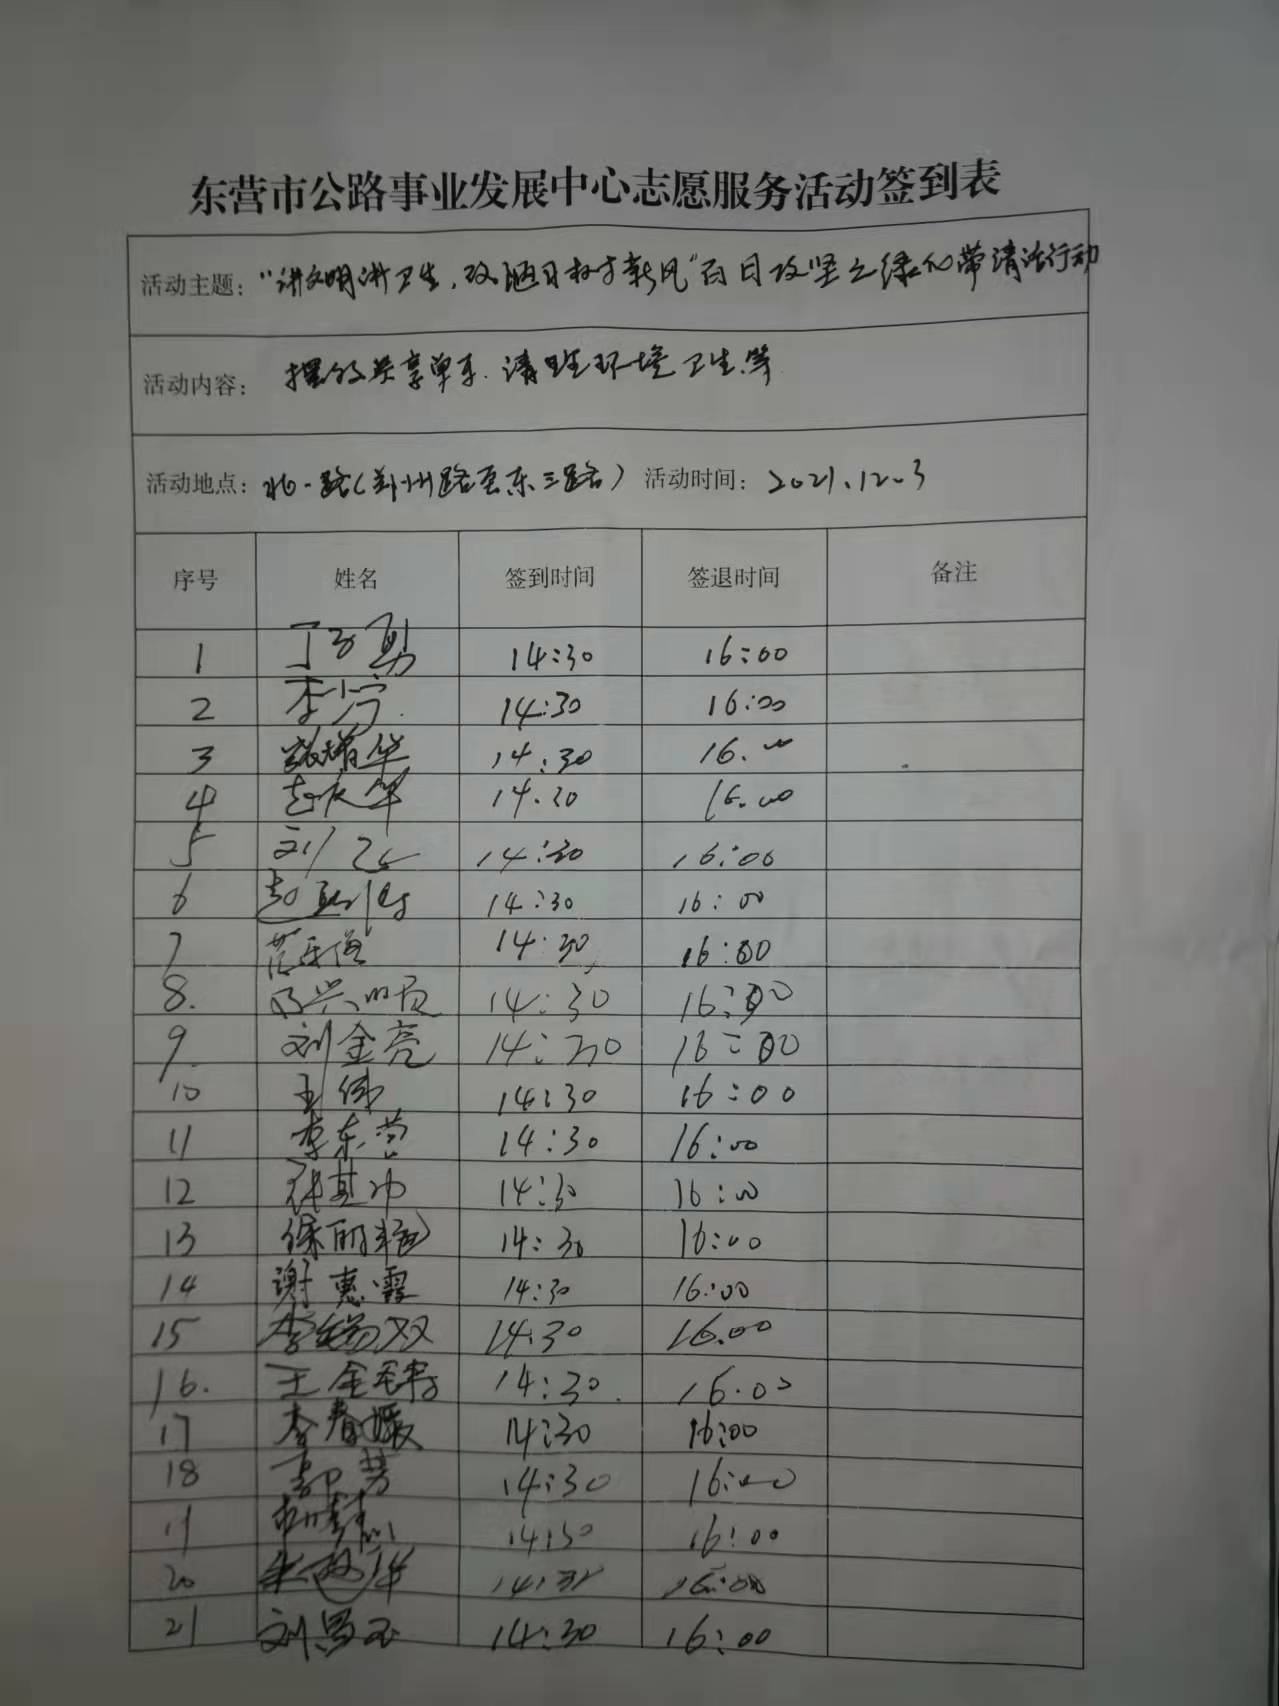 东营市公路事业发展中心志愿服务活动签到表
活动主题：“讲文明讲卫生，改陋习树新风”百日攻坚之绿化带清洁行动
活动内容：摆放共享单车.清理环境卫生等
活动地点：北一路(郑州路至东三路) 活动时间：2021.12.3
序号 姓名 签到时间 签退时间 备注
1 丁子勇 14:30 16:00
2 李小宁 14:30 16:00
3 14:30 16.00
4 14.30 16.00
5 14:30 16:00
6 14:30 16:00
7 14:30 16:00
8. 14:30 16:00
9. 刘金亮 14:30 16:00
10 王伟 14:30 16:00
11 李东营 14:30 16:00
12 14:30 16:00
13 14:30 16:00
14 谢惠霞 14:30 16:00
15 14:30 16.00
16. 14:30 16.00
17 李春媛 14:30 16:00
18 郭芳 14:30 16:00
19 14:30 16:00
20 16:00
21 14:30 16:00